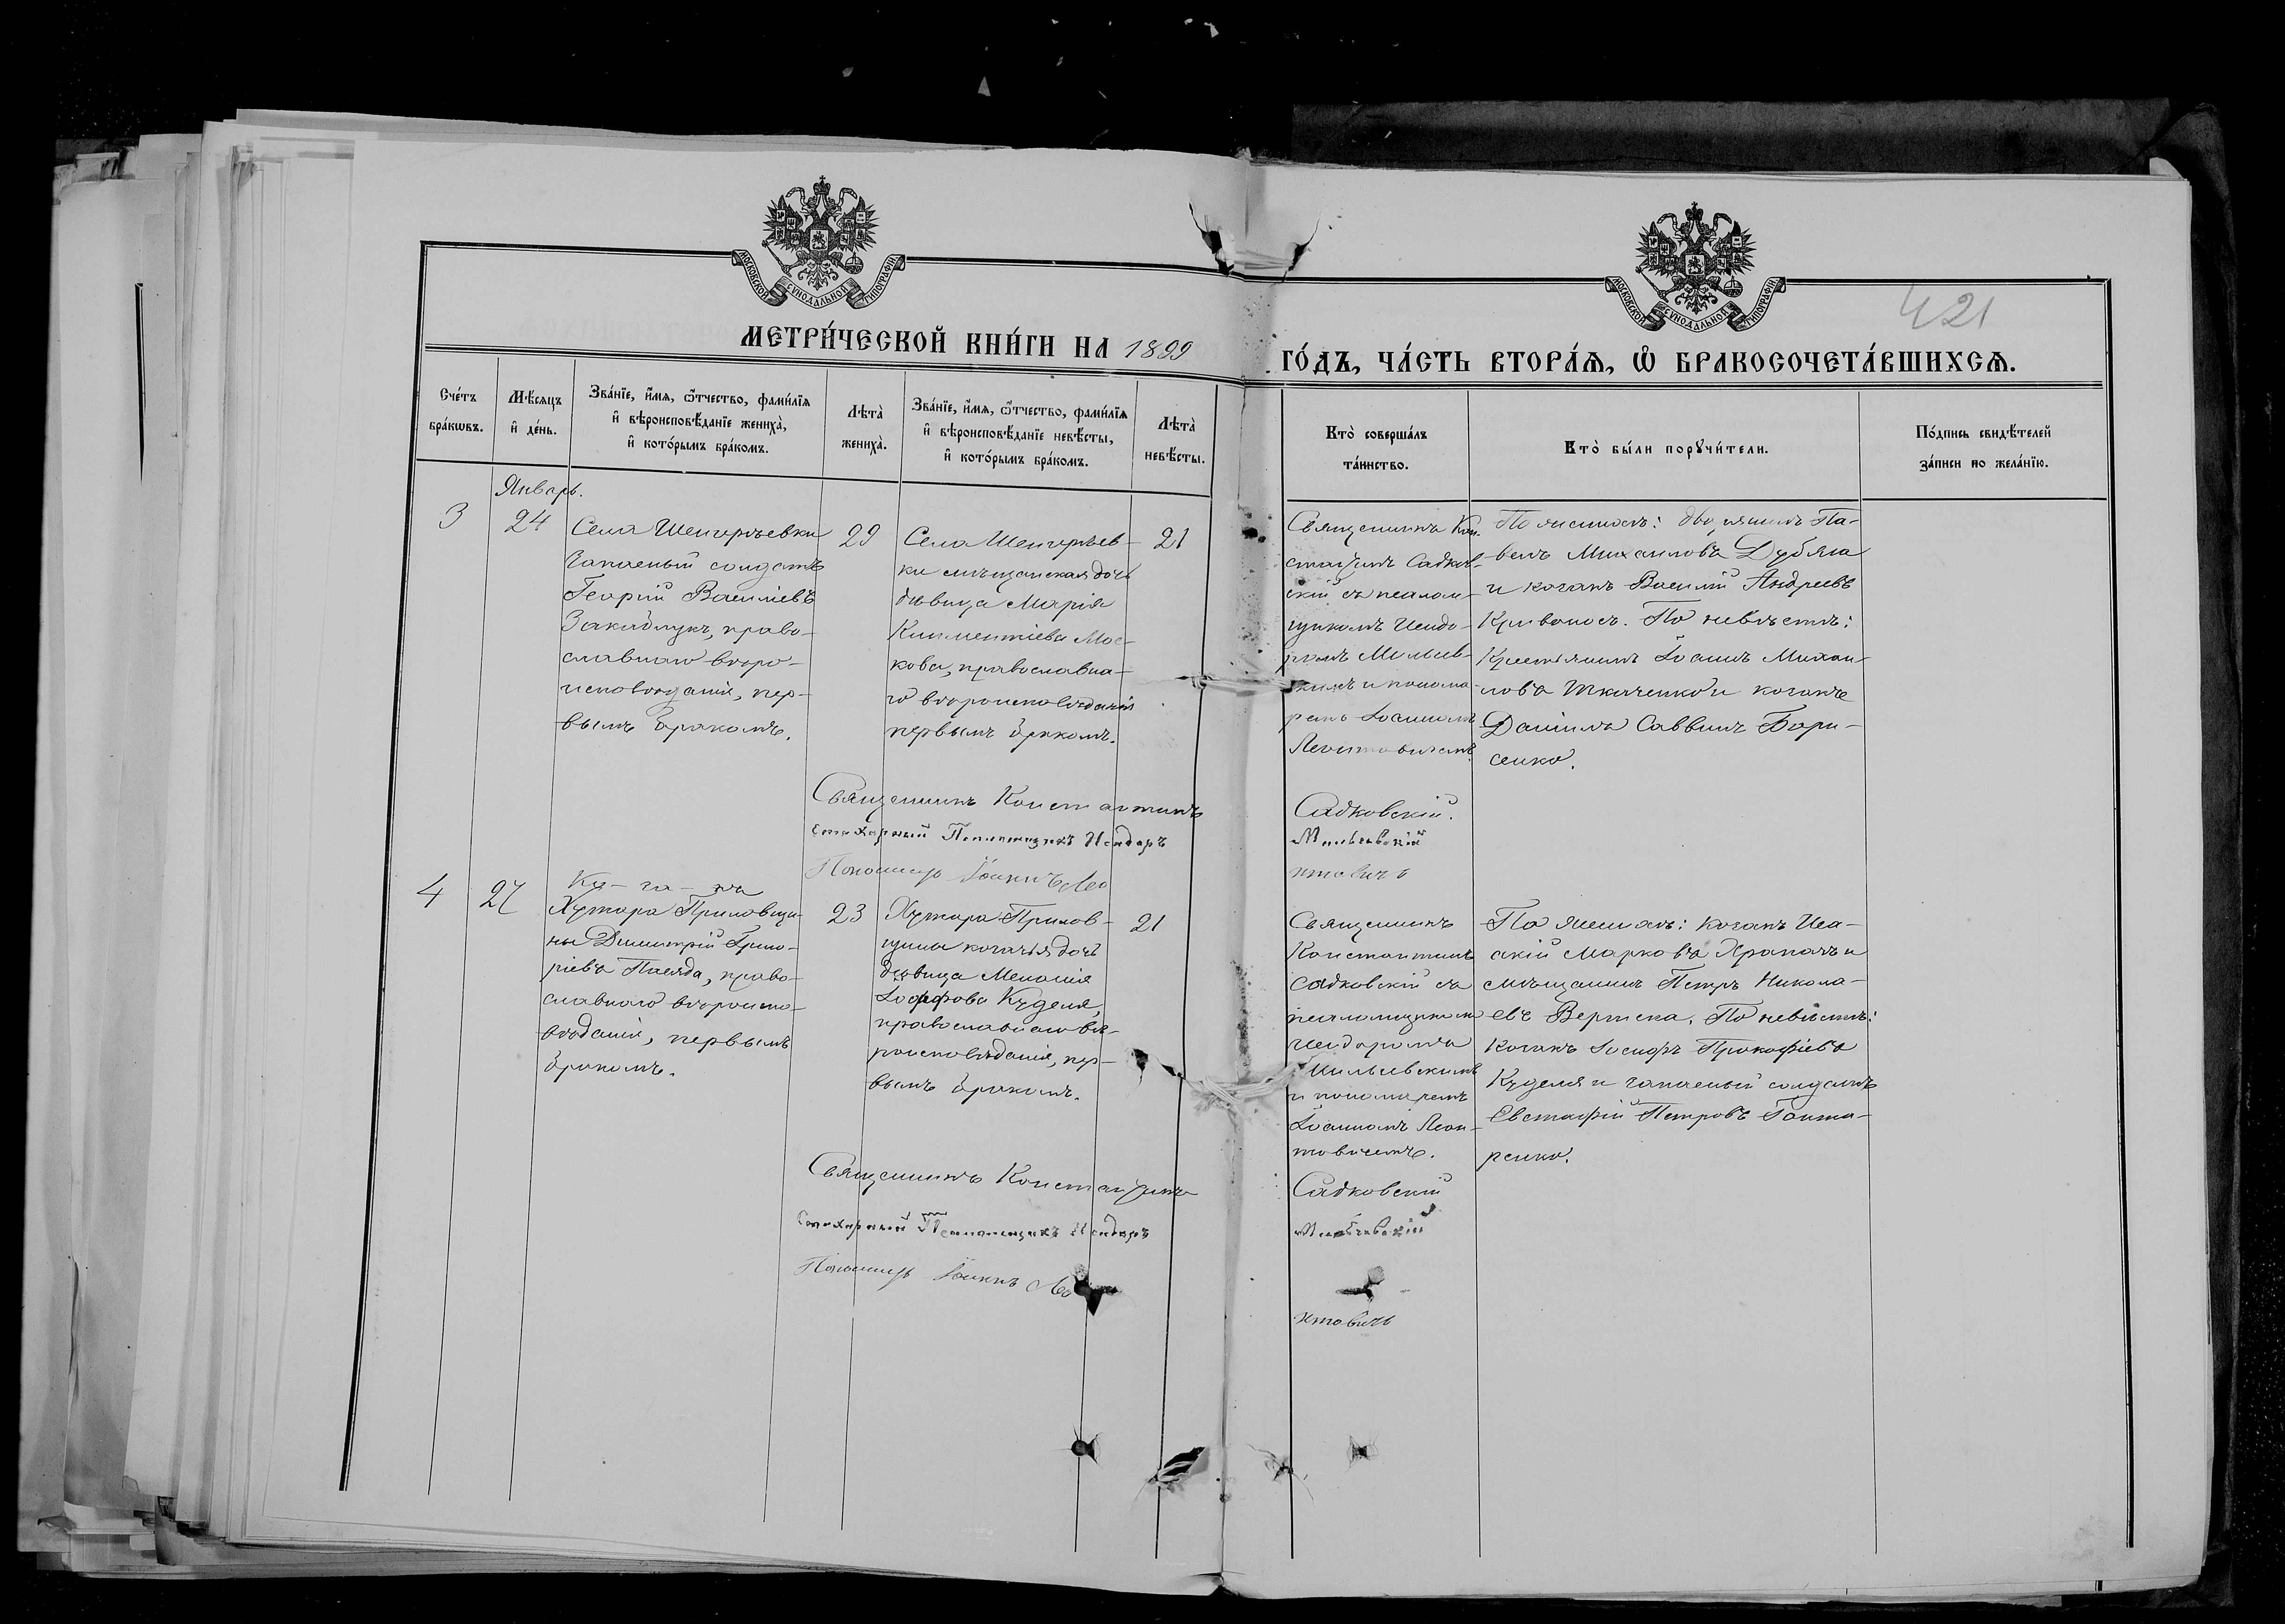 МОСКОВСКОЙ СѴНОДАЛЬНОЙ ТИПОГРАФІИ
МОСКОВСКОЙ СѴНОДАЛЬНОЙ ТИПОГРАФІИ
421
МЕТРИ́ЧЕСКОЙ КНИ́ГИ НА 1899
ГО́ДЪ, ЧА́СТЬ ВТОРА́Ѧ, Ѽ БРАКОСОЧЕТА́ВШИХСѦ.
Сче́тъ
бра́кѡвъ.
Мѣ́сяцъ
и҆ де́нь.
Зва́нїе, и҆́мѧ, ѻ҆́тчество, фами́лїѧ
и҆ вѣроисповѣ́данїе жениха̀,
и҆ кото́рымъ бра́комъ.
Лѣта̀
жениха̀.
Зва́нїе, и҆́мѧ, ѻ҆́тчество, фами́лїѧ
и҆ вѣроисповѣ́данїе невѣ́сты,
и҆ кото́рымъ бра́комъ.
Лѣта̀
невѣ́сты.
Кто̀ соверша́лъ
та́инство.
Кто̀ бы́ли порꙋчи́тели.
По́дпись свидѣ́телей
за́писи по жела́нїю.
Январь.
3
24
Села Шенгеріевки
Запасный солдатъ
Георгій Василіевъ
право-
славнаго вѣро-
исповѣданія, пер-
вымъ бракомъ.
29
Села Шенгеріев-
ки мѣщанская дочь
дѣвица Марія
Климентіева Мос-
кова, православна-
го вѣроисповѣданія
первымъ бракомъ.
21
Священникъ Кон-
стантинъ Садков-
скій съ псалом-
щикомъ Исидо-
ромъ Мильев-
скимъ и понома-
ремъ Іоанномъ
Леонтовичемъ.
По женихѣ: дворянинъ Па-
велъ Михаиловъ Дубяга
и козакъ Василій Андреевъ
Кривоносъ. По невѣстѣ:
Крестьянинъ Іоаннъ Михаи-
ловъ Ткаченко и козакъ
Даніилъ Саввинъ Бори-
сенко.
Священникъ Константинъ
Садковскій.
Стихарный Псаломщикъ Исидоръ
Мильевскій
Пономарь Іоаннъ Лео
нтовичъ
4
27
Ко-за-къ
Хутора Приловщи-
ны Димитрій Григо-
ріевъ право-
славнаго вѣроиспо-
вѣданія, первымъ
бракомъ.
23
Хутора Прилов-
щины козачья дочь
дѣвица Меланія
Іосифова Куделя,
православнаго вѣ-
роисповѣданія, пер-
вымъ бракомъ.
21
Священникъ
Константинъ
Садковскій съ
псаломщикомъ
Исидоромъ
Мильевскимъ
и пономаремъ
Іоанномъ Леон-
товичемъ.
По женихѣ: Козакъ Иса-
акій Марковъ Храпачъ и
мѣщанинъ Петръ Никола-
евъ По невѣстѣ:
Козакъ Іосифъ Прокофіевъ
Куделя и запасный солдатъ
Евстафій Петровъ Гонча-
ренко.
Священникъ Константинъ
Садковскій
Стихарный Псаломщикъ Исидоръ
Мильевскій
Пономарь Іоаннъ Лео
нтовичъ